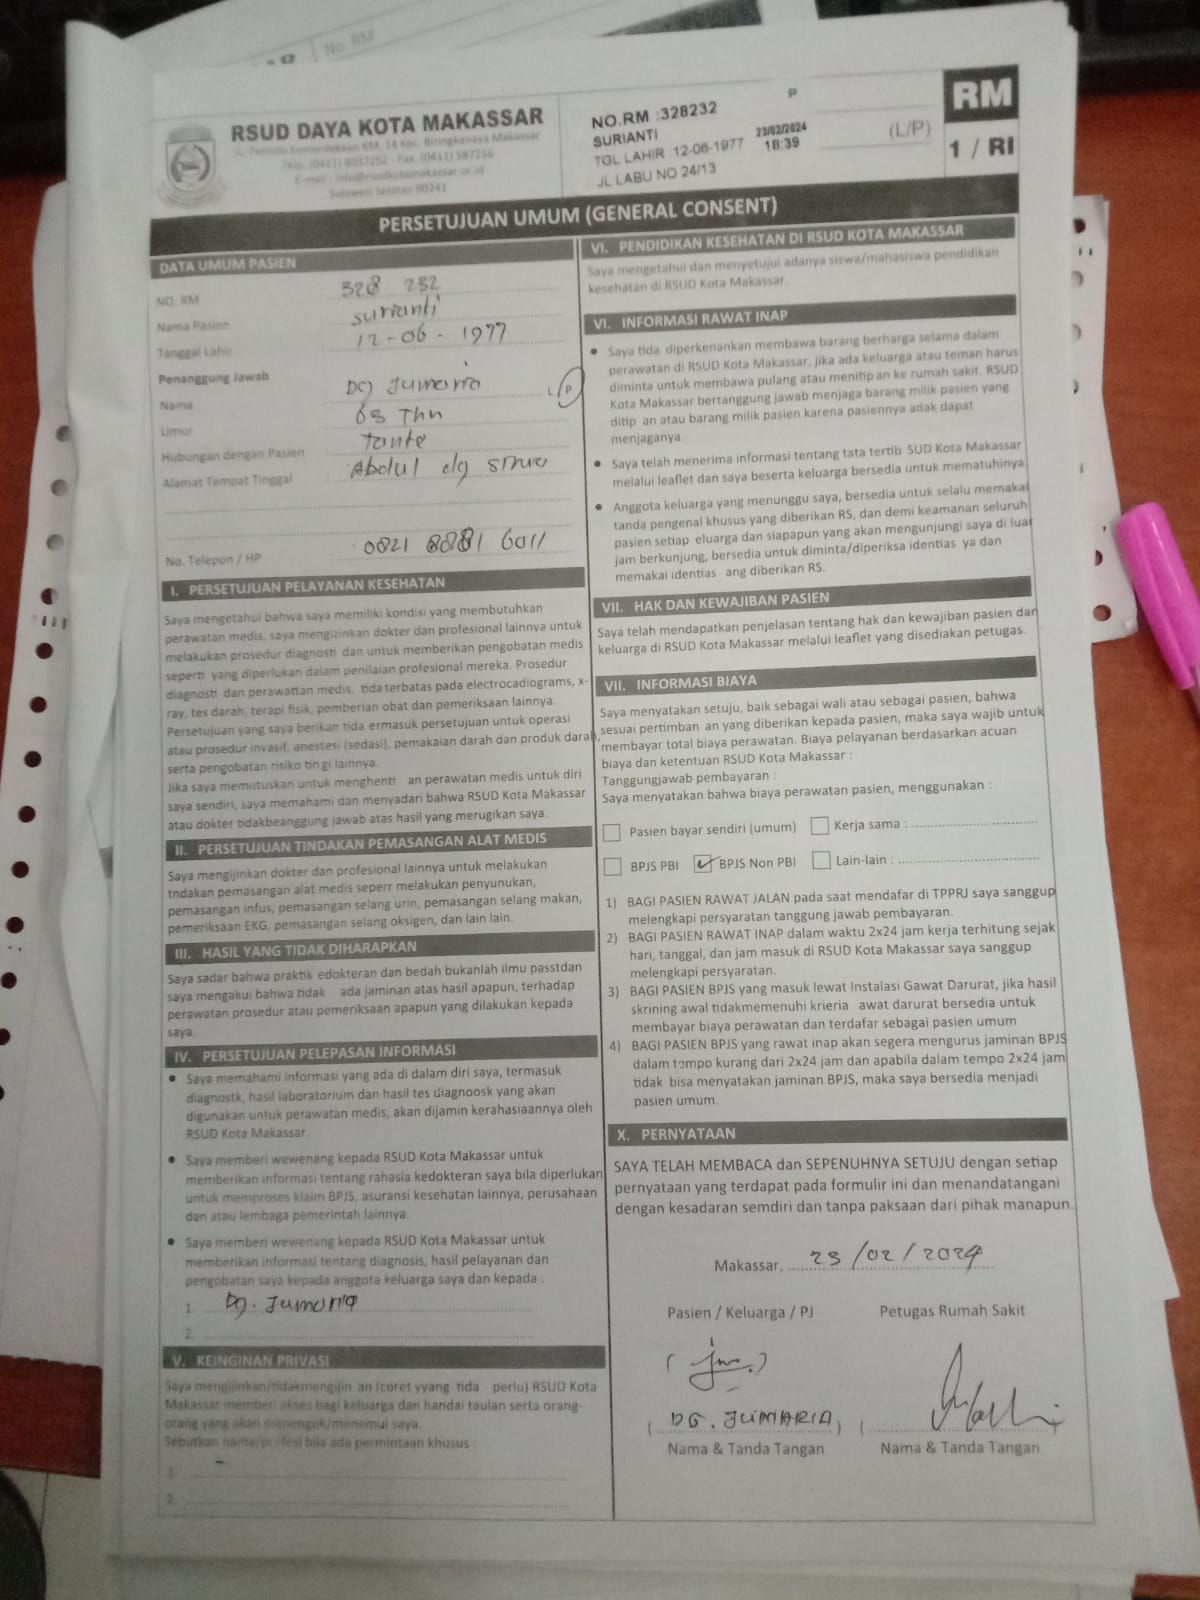 No. RM
RSUD DAYA KOTA MAKASSAR
JL. Perintis Kemerdekaan KM. 14 Kec. Biringkanaya Makassar
Telp. (0411) 8037252 - Fax. (0411) 587256
E-mail : info@rsudkotamakassar.or.id
Sulawesi Selatan 90241
P
NO.RM :328232
SURIANTI
TGL LAHIR 12-06-1977
23/02/2024
18:39
JL LABU NO 24/13
(L/P)
RM
1 / RI
PERSETUJUAN UMUM (GENERAL CONSENT)
DATA UMUM PASIEN
NO. RM 328 232
Nama Pasien surianti
Tanggal Lahir 12-06-1977
Penanggung Jawab
Nama Dg Jumaria L/P
Umur Thn
Hubungan dengan Pasien Tante
Alamat Tempat Tinggal Abdul dg
No. Telepon / HP 0821 8881 6011
I. PERSETUJUAN PELAYANAN KESEHATAN
Saya mengetahui bahwa saya memiliki kondisi yang membutuhkan
perawatan medis, saya mengizinkan dokter dan profesional lainnya untuk
melakukan prosedur diagnosti dan untuk memberikan pengobatan medis
seperti yang diperlukan dalam penilaian profesional mereka. Prosedur
diagnosti dan perawattan medis, tida terbatas pada electrocadiograms, x-
ray, tes darah, terapi fisik, pemberian obat dan pemeriksaan lainnya.
Persetujuan yang saya berikan tida ermasuk persetujuan untuk operasi
atau prosedur invasif, anestesi (sedasi), pemakaian darah dan produk darah,
serta pengobatan risiko tin gi lainnya.
Jika saya memutuskan untuk menghenti an perawatan medis untuk diri
saya sendiri, saya memahami dan menyadari bahwa RSUD Kota Makassar
atau dokter tidakbeanggung jawab atas hasil yang merugikan saya.
II. PERSETUJUAN TINDAKAN PEMASANGAN ALAT MEDIS
Saya mengijinkan dokter dan profesional lainnya untuk melakukan
tndakan pemasangan alat medis seperr melakukan penyunukan,
pemasangan infus, pemasangan selang urin, pemasangan selang makan,
pemeriksaan EKG, pemasangan selang oksigen, dan lain lain.
III. HASIL YANG TIDAK DIHARAPKAN
Saya sadar bahwa praktik edokteran dan bedah bukanlah ilmu passtdan
saya mengakui bahwa tidak ada jaminan atas hasil apapun, terhadap
perawatan prosedur atau pemeriksaan apapun yang dilakukan kepada
saya.
IV. PERSETUJUAN PELEPASAN INFORMASI
• Saya memahami informasi yang ada di dalam diri saya, termasuk
diagnostk, hasil laboratorium dan hasil tes diagnoosk yang akan
digunakan untuk perawatan medis, akan dijamin kerahasiaannya oleh
RSUD Kota Makassar.
• Saya memberi wewenang kepada RSUD Kota Makassar untuk
memberikan informasi tentang rahasia kedokteran saya bila diperlukan
untuk memproses klaim BPJS, asuransi kesehatan lainnya, perusahaan
dan atau lembaga pemerintah lainnya.
• Saya memberi wewenang kepada RSUD Kota Makassar untuk
memberikan informasi tentang diagnosis, hasil pelayanan dan
pengobatan saya kepada anggota keluarga saya dan kepada :
1. Dg. Jumaria
2.
V. KEINGINAN PRIVASI
Saya mengijinkan/tidakmengijin an (coret yyang tida perlu) RSUD Kota
Makassar memberi akses bagi keluarga dan handai taulan serta orang-
orang yang akan menengok/menemui saya.
Sebutkan nama/profesi bila ada permintaan khusus :
1. -
2.
VI. PENDIDIKAN KESEHATAN DI RSUD KOTA MAKASSAR
Saya mengetahui dan menyetujui adanya siswa/mahasiswa pendidikan
kesehatan di RSUD Kota Makassar.
VI. INFORMASI RAWAT INAP
• Saya tida diperkenankan membawa barang berharga selama dalam
perawatan di RSUD Kota Makassar, jika ada keluarga atau teman harus
diminta untuk membawa pulang atau menitip an ke rumah sakit. RSUD
Kota Makassar bertanggung jawab menjaga barang milik pasien yang
ditip an atau barang milik pasien karena pasiennya adak dapat
menjaganya.
• Saya telah menerima informasi tentang tata tertib SUD Kota Makassar
melalui leaflet dan saya beserta keluarga bersedia untuk mematuhinya
• Anggota keluarga yang menunggu saya, bersedia untuk selalu memakai
tanda pengenal khusus yang diberikan RS, dan demi keamanan seluruh
pasien setiap eluarga dan siapapun yang akan mengunjungi saya di luar
jam berkunjung, bersedia untuk diminta/diperiksa identias ya dan
memakai identias ang diberikan RS.
VII. HAK DAN KEWAJIBAN PASIEN
Saya telah mendapatkan penjelasan tentang hak dan kewajiban pasien dan
keluarga di RSUD Kota Makassar melalui leaflet yang disediakan petugas.
VII. INFORMASI BIAYA
Saya menyatakan setuju, baik sebagai wali atau sebagai pasien, bahwa
sesuai pertimban an yang diberikan kepada pasien, maka saya wajib untuk
membayar total biaya perawatan. Biaya pelayanan berdasarkan acuan
biaya dan ketentuan RSUD Kota Makassar :
Tanggungjawab pembayaran :
Saya menyatakan bahwa biaya perawatan pasien, menggunakan :
☐ Pasien bayar sendiri (umum) ☐ Kerja sama :
☐ BPJS PBI ☑ BPJS Non PBI ☐ Lain-lain :
1) BAGI PASIEN RAWAT JALAN pada saat mendafar di TPPRJ saya sanggup
melengkapi persyaratan tanggung jawab pembayaran.
2) BAGI PASIEN RAWAT INAP dalam waktu 2x24 jam kerja terhitung sejak
hari, tanggal, dan jam masuk di RSUD Kota Makassar saya sanggup
melengkapi persyaratan.
3) BAGI PASIEN BPJS yang masuk lewat Instalasi Gawat Darurat, jika hasil
skrining awal tidakmemenuhi krieria awat darurat bersedia untuk
membayar biaya perawatan dan terdafar sebagai pasien umum
4) BAGI PASIEN BPJS yang rawat inap akan segera mengurus jaminan BPJS
dalam tempo kurang dari 2x24 jam dan apabila dalam tempo 2x24 jam
tidak bisa menyatakan jaminan BPJS, maka saya bersedia menjadi
pasien umum.
X. PERNYATAAN
SAYA TELAH MEMBACA dan SEPENUHNYA SETUJU dengan setiap
pernyataan yang terdapat pada formulir ini dan menandatangani
dengan kesadaran semdiri dan tanpa paksaan dari pihak manapun.
Makassar, 23/02/2024
Pasien / Keluarga / PJ Petugas Rumah Sakit
(DG. JUMARIA) (
Nama & Tanda Tangan Nama & Tanda Tangan